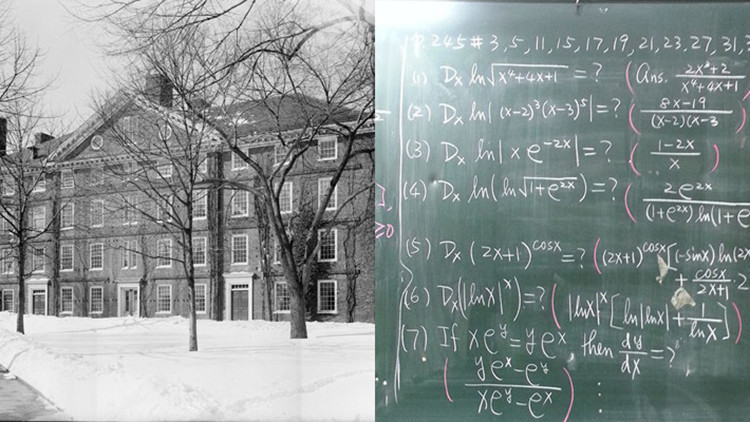 P. 245 # 3, 5, 11, 15, 17, 19, 21, 23, 27, 31, 3
(1) Dx ln√(x⁴+4x+1) = ? (Ans. (2x³+2)/(x⁴+4x+1)
(2) Dx ln|(x-2)³(x-3)⁵| = ? ((8x-19)/((x-2)(x-3
(3) Dx ln|x e^(-2x)| = ? ((1-2x)/x)
(4) Dx ln(ln√(1+e^(2x))) = ? (2e^(2x)/((1+e^(2x)) ln(1+e
(5) Dx (2x+1)^(cosx) = ? ((2x+1)^(cosx) [(-sinx) ln(2x
+ cosx/(2x+1) · 2
(6) Dx(|lnx|^x) = ? (|lnx|^x [ln|lnx| + 1/lnx])
(7) If xe^y = ye^x, then dy/dx = ?
((ye^x - e^y)/(xe^y - e^x)) ⋮
≥0